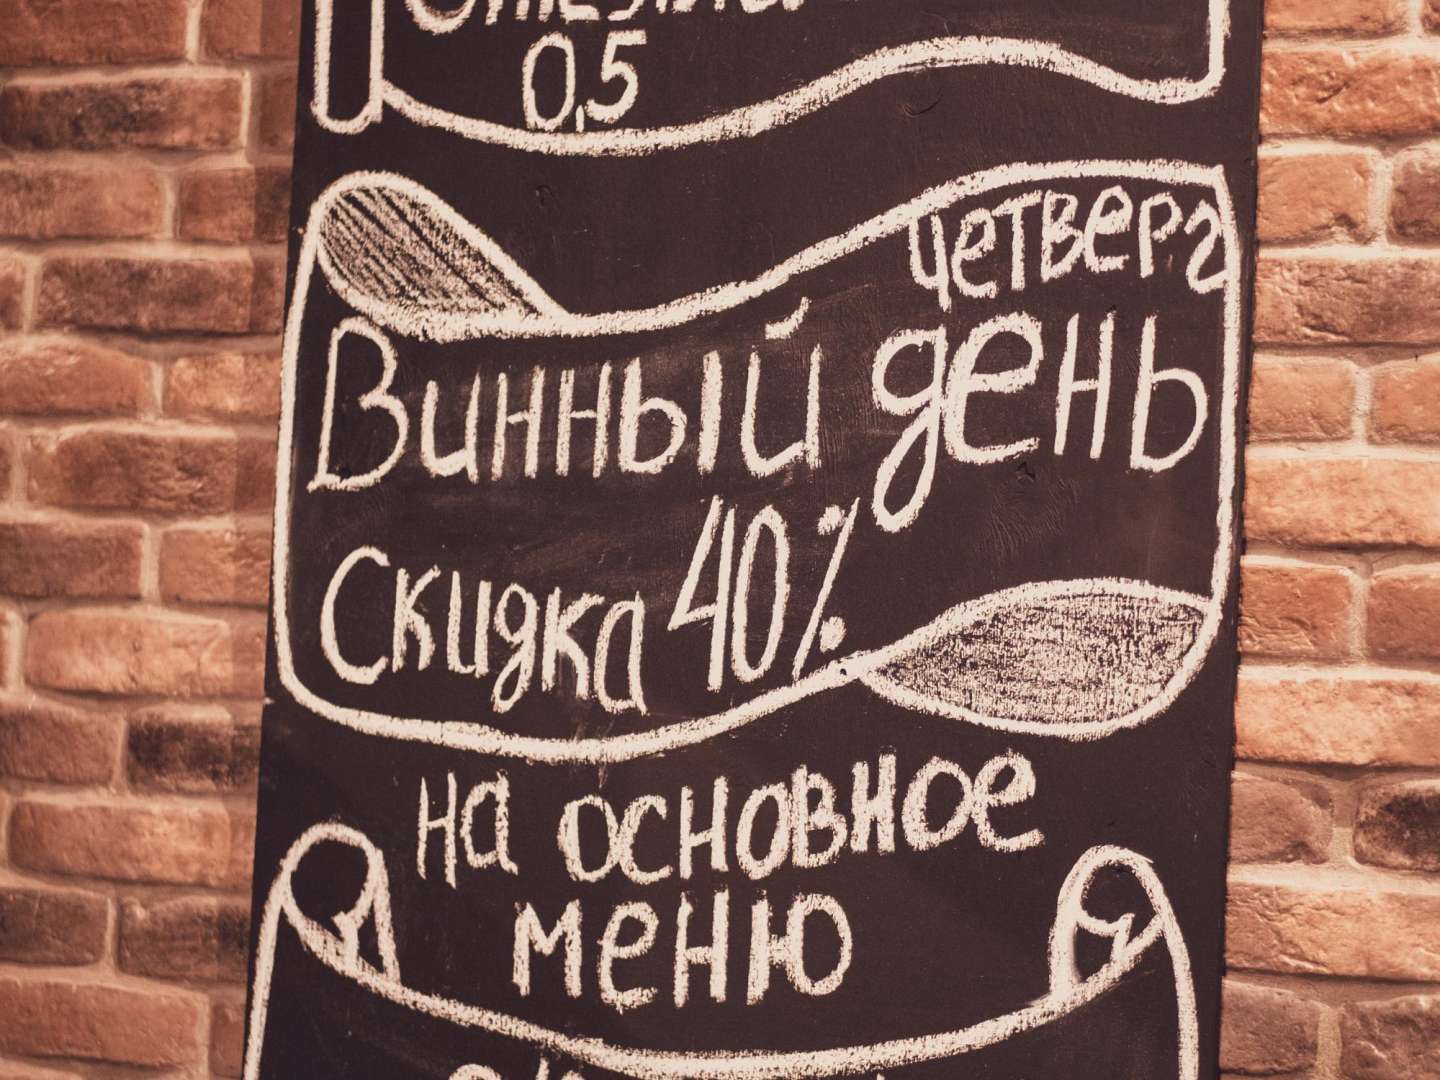 0,5
четверг
Винный день
Скидка 40%
на основное
меню